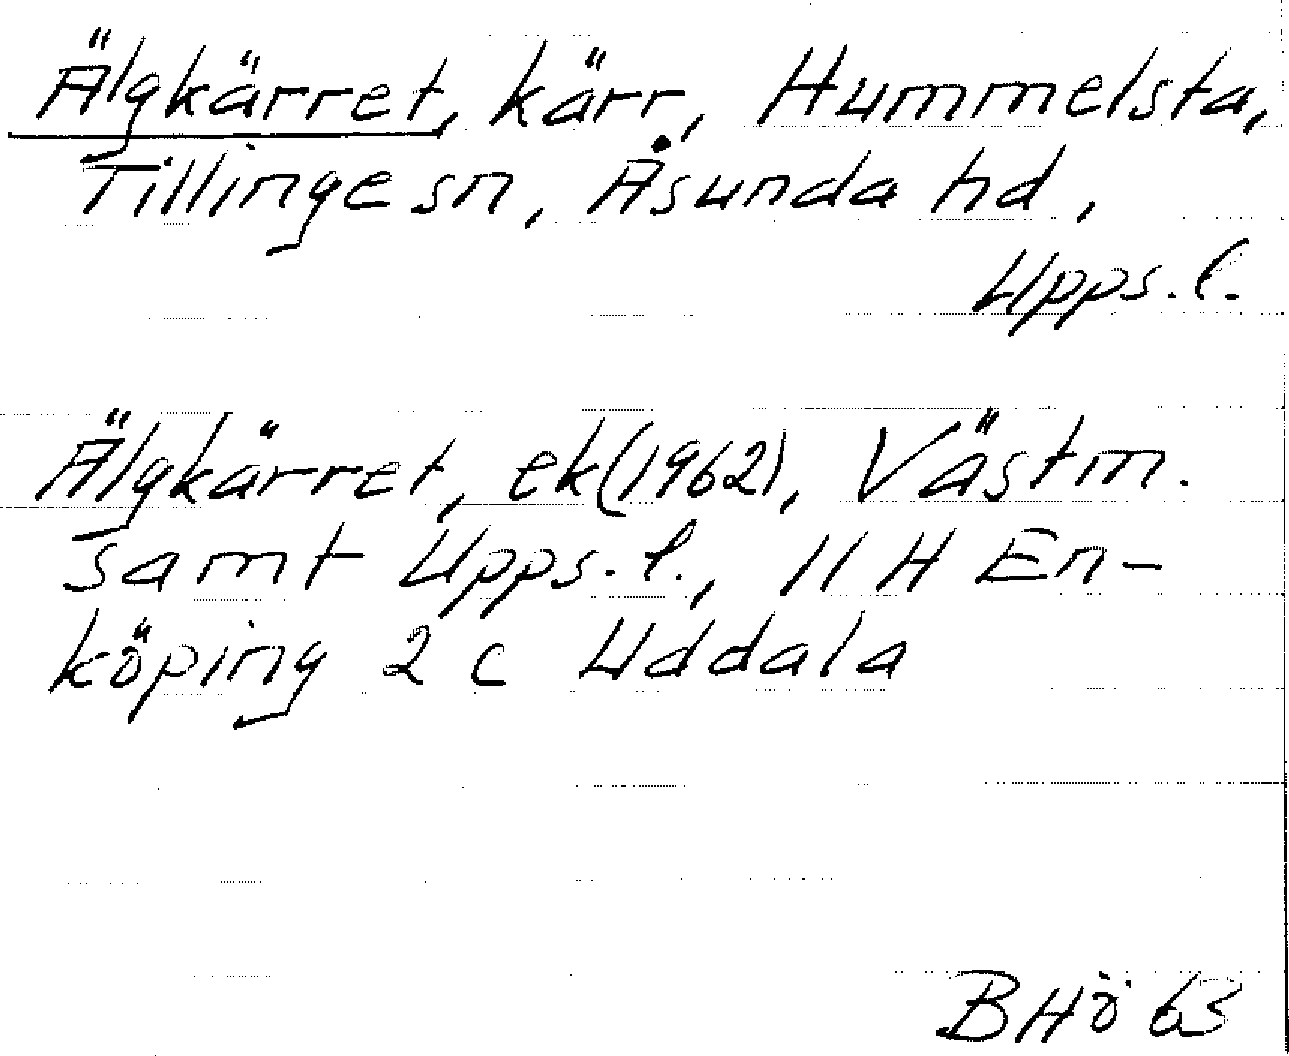 Älgkärret, kärr, Hummelsta,
Tillinge sn, Åsunda hd,
Upps. l.
Älgkärret, ek (1962), Västm.
samt Upps. l., 11 H En-
köping 2 c Uddala
BHö 63